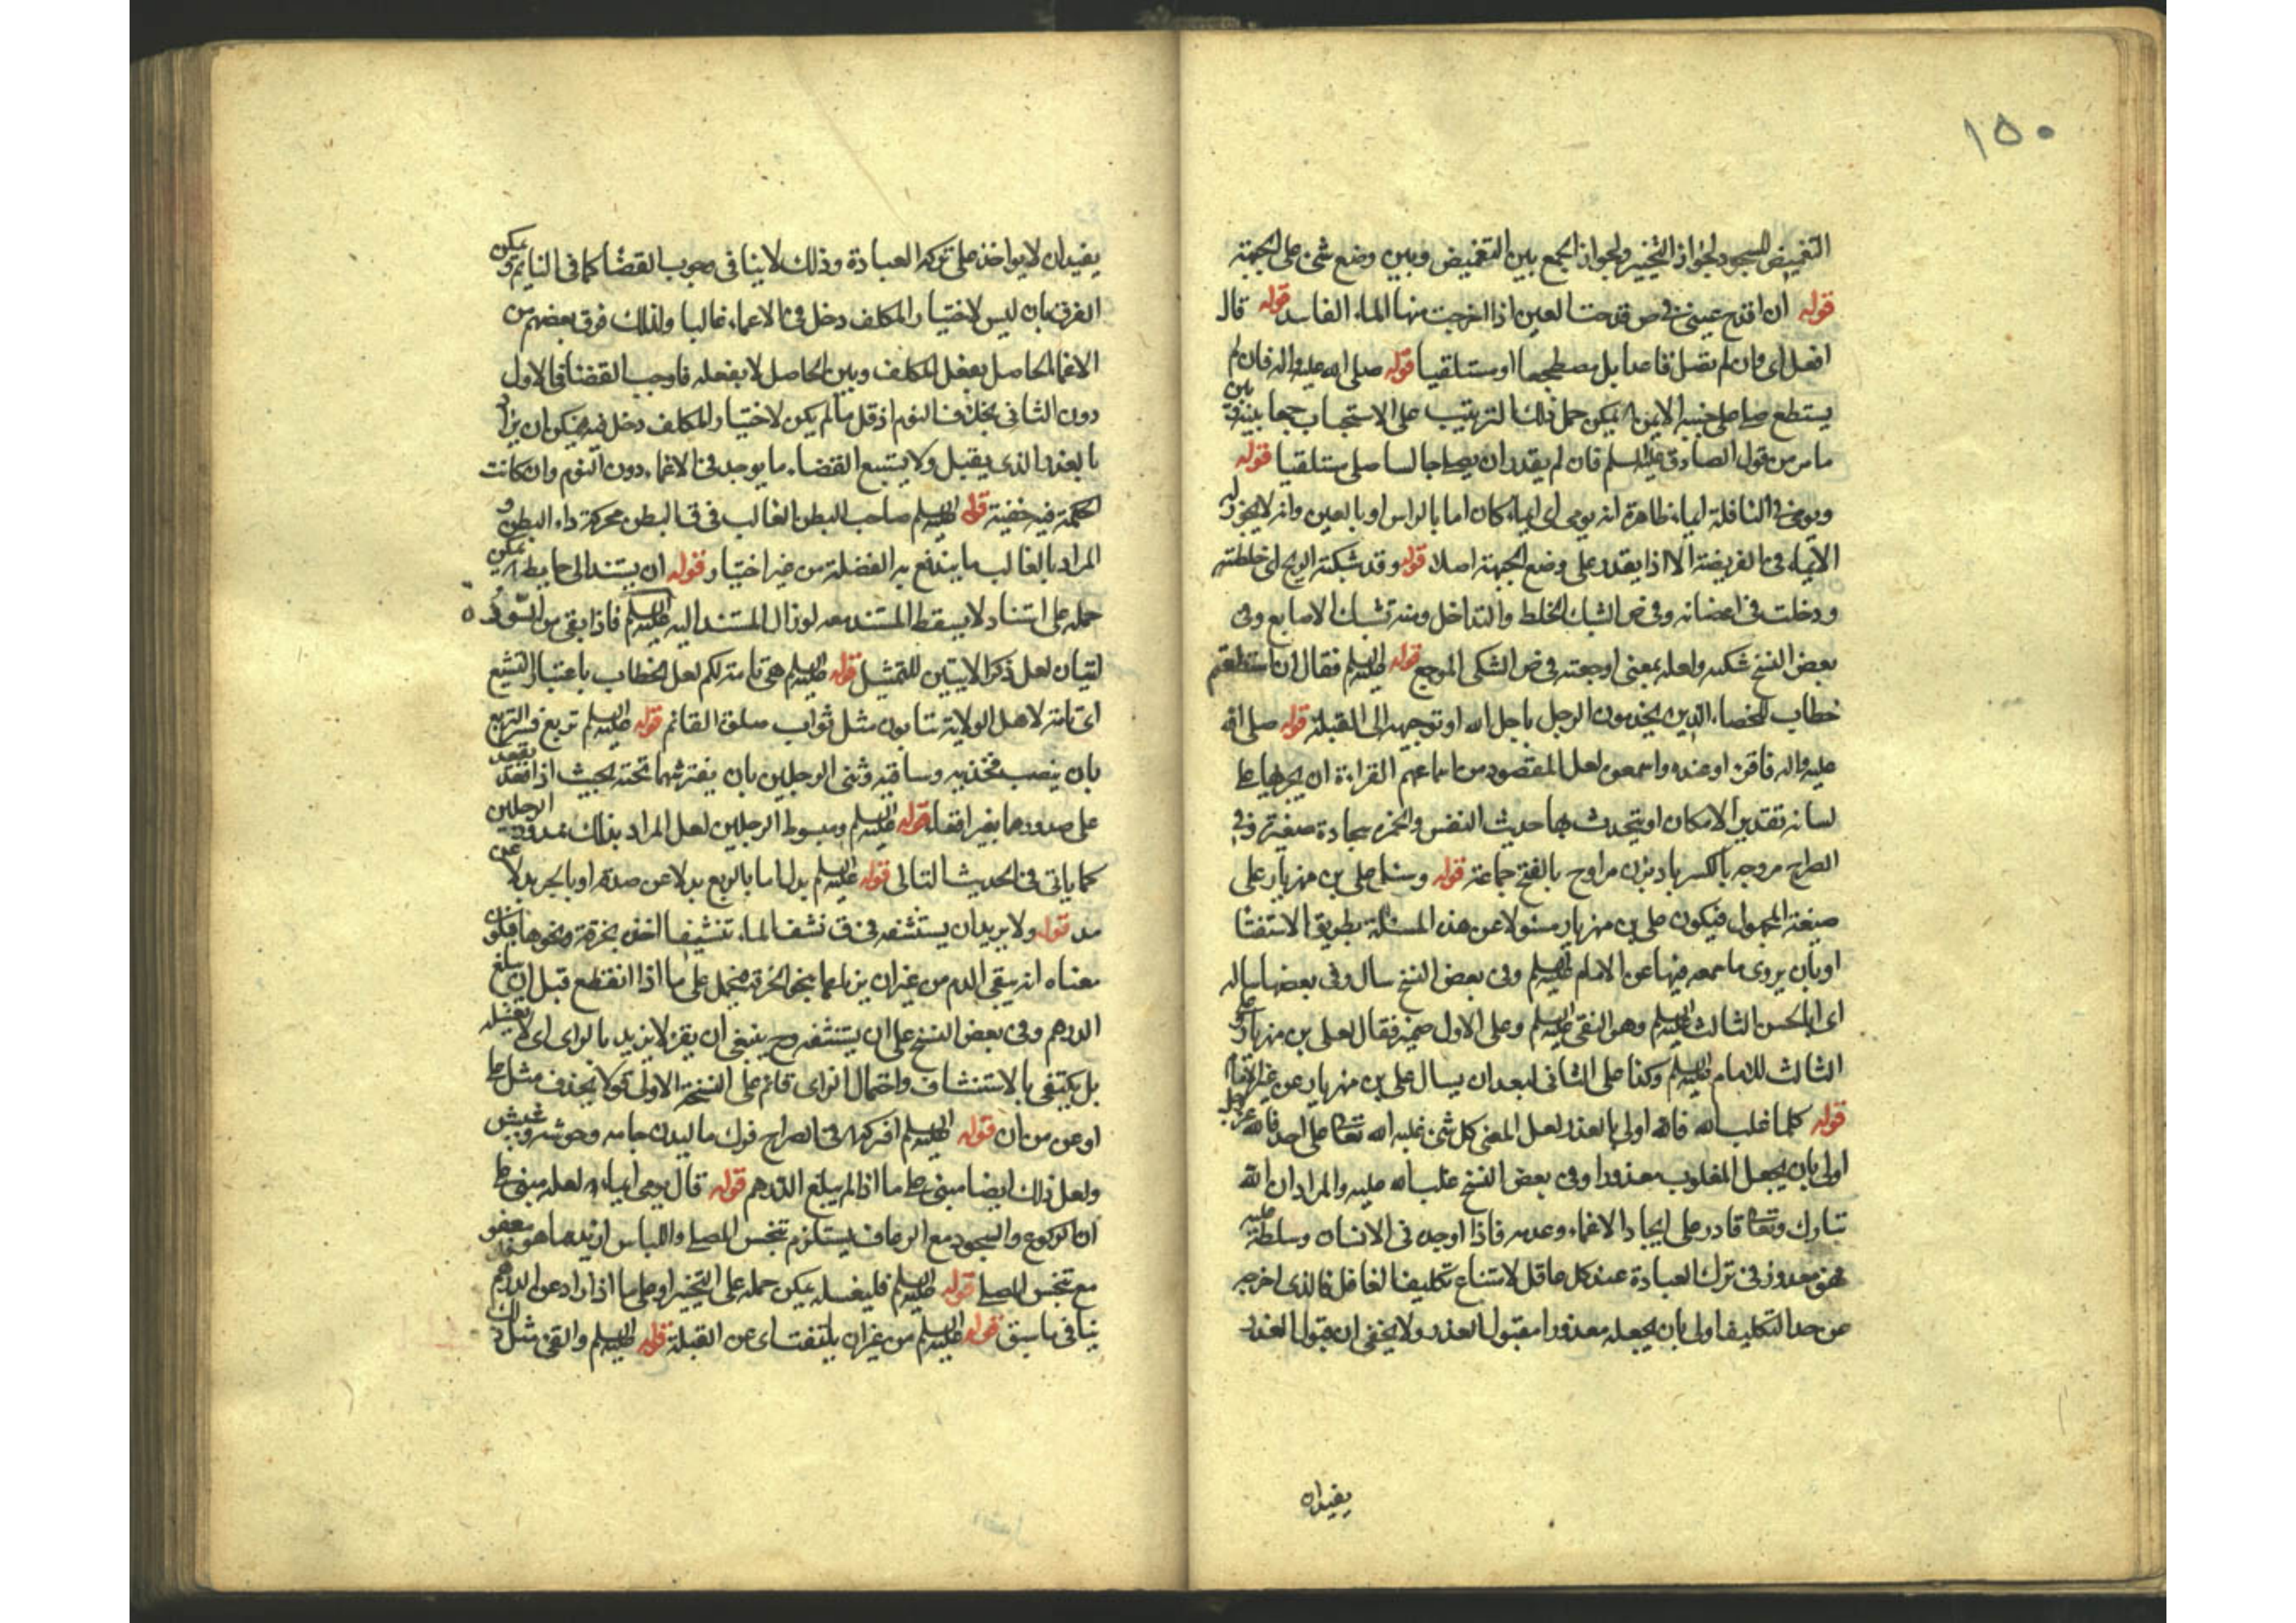 ١٥٠
التغميض للسجود لجواز التخيير ولجواز الجمع بين التغميض وبين وضع شئ على الجبهة
قوله ان اقدح عينى فى ص قدحت العين اذا اخرجت منها الماء الفاسد قوله قال
افعل اى وان لم تصل قاعدا بل مضطجعا او مستلقيا قوله صلى الله عليه واله فان لم
يستطع صلى على جنبه الايمن يمكن حمل ذلك الترتيب على الاستحباب جمعا بينه وبين
ما مر من قول الصادق عليه السلم فان لم يقدر ان يصلى جالسا صلى مستلقيا قوله
ويومئ فى النافلة ايماء ظاهره انه يومى اى ايماء كان اما بالراس او بالعين وانه لا يجوز له
الايماء فى الفريضة الا اذا يقدر على وضع الجبهة اصلا قوله وقد شبكته الريح اى خلطته
ودخلت فى اعضائه وفى ص الشبك الخلط والتداخل ومنه تشبك الاصابع وفى
بعض النسخ شكته ولعله بمعنى اوجعته فى ص الشكى الموجع قوله عليه السلم فقال ان استطعتم
خطاب للخصاء الذين يخدمون الرجل باجل الله او توجيهه الى القبلة قوله صلى الله
عليه واله فاقرء اوعنده واسمعوه لعل المقصود من اسماعهم القراءة ان يجريها على
لسانه تقدير الامكان او يتحدث بها حديث النفس والخمرة سجادة صغيرة وفى
الطراح مروحه بالكسر بادبزن مراوح بالفتح جماعة قوله وسئل على بن مهزيار على
صيغة المجهول فيكون على بن مهزيار مسئولا عن هذه المسئلة بطريق الاستفتا
او بان يروى ما سمعه فيها عن الامام عليه السلم وفى بعض النسخ سال وفى بعضها ساله
اى ابا الحسن الثالث عليه السلم وهو النقى عليه السلم وعلى الاول ضمير فقال لعلى بن مهزيار وعلى
الثالث للامام عليه السلم وكذا على الثانى لبعد ان يسال على بن مهزيار عن غير الامام
قوله كلما غلب الله فالله اولى بالعذر لعل المعنى كل شئ غلبه الله تعالى على احد فالله عز وجل
اولى بان يجعل المغلوب معذورا وفى بعض النسخ غلب الله عليه والمراد ان الله
تبارك وتعالى قادر على ايجاد الاغماء وعدمه فاذا اوجده فى الانسان وسلطه عليه
فهو معذور فى ترك العبادة عند كل عاقل لامتناع تكليف الغافل فالذى اخرجه
من حد التكليف اولى بان يجعله معذورا مقبول العذر ولا يخفى ان قبول العذر
يفيد ان
يفيد ان لا يواخذ على تركه العبادة وذلك لا ينافى وجوب القضا كما فى النايم ويمكن
الفرق بان ليس لاختيار المكلف دخل فى الاغماء غالبا ولذلك فرق بعضهم بين
الاغما الحاصل بفعل المكلف وبين الحاصل لا بفعله فاوجب القضا فى الاول
دون الثانى بخلاف النوم اذ قل ما لم يكن لاختيار المكلف دخل فيه فيمكن ان يراد
بالعذر الذى يقبل ولا يستتبع القضاء ما يوجد فى الاغماء دون النوم وان كانت
الحكمة فيه خفية قوله عليه السلم صاحب البطن الغالب فى ق البطن محركة داء البطن و
المراد بالغالب ما يندفع به الفضلة من غير اختيار قوله ان يستند الى حايط يمكن
حمله على استناد لا يسقط المستند معه لو زال المستند اليه قوله عليه السلم فاذا بقى من السورة
ايتان لعل ذكر الايتين للتمثيل قوله عليه السلم هى تامة لكم لعل الخطاب باعتبار التشيع
اى تامة لاهل الولاية تثابون مثل ثواب صلوة القائم قوله عليه السلم تربع فسر التربع
بان ينصب فخذيه وساقيه وثنى الرجلين بان يفترشهما تحته بحيث اذا قعد يقعد
على صدورهما بغير اقعاء قوله عليه السلم ومبسوط الرجلين لعل المراد بذلك ممدود الرجلين
كما ياتى فى الحديث التالى قوله عليه السلم بدل اما بالرفع بدلا عن صدقة او بالجر بدلا عن
مد قوله ولا يريد ان يستنشفه فى ق نشف الماء تنشيفا اخذه بخرقة ونحوها فيكون
معناه انه يبقى الدم من غير ان يزيله بنحو الخرقة فيحمل على ما اذا انقطع قبل ان يبلغ
الدرهم وفى بعض النسخ على ان يستنشفه وح ينبغى ان يقرء لا يزيد بالزاى اى لا يغسله
بل يكتفى بالاستنشاف واحتمال الزاى قائم على النسخة الاولى قولا بحذف مثل على
او عن من ان قوله عليه السلم افركه فى الصراح فرك ماليدن جامه وخوشه وغيرش
ولعل ذلك ايضا مبنى على ما اذا لم يبلغ الدرهم قوله قال يومى ايماء لعله مبنى على
ان الركوع والسجود مع الرعاف يستلزم تنجس المصلى واللباس ازيد مما هو معفو
مع تنجس المصلى قوله عليه السلم فليغسله يمكن حمله على التخيير او على ما اذا زاد عن الدرهم
ينافى ما سبق قوله عليه السلم من غير ان يلتفت اى عن القبلة قوله عليه السلم والقئ مثل ذلك